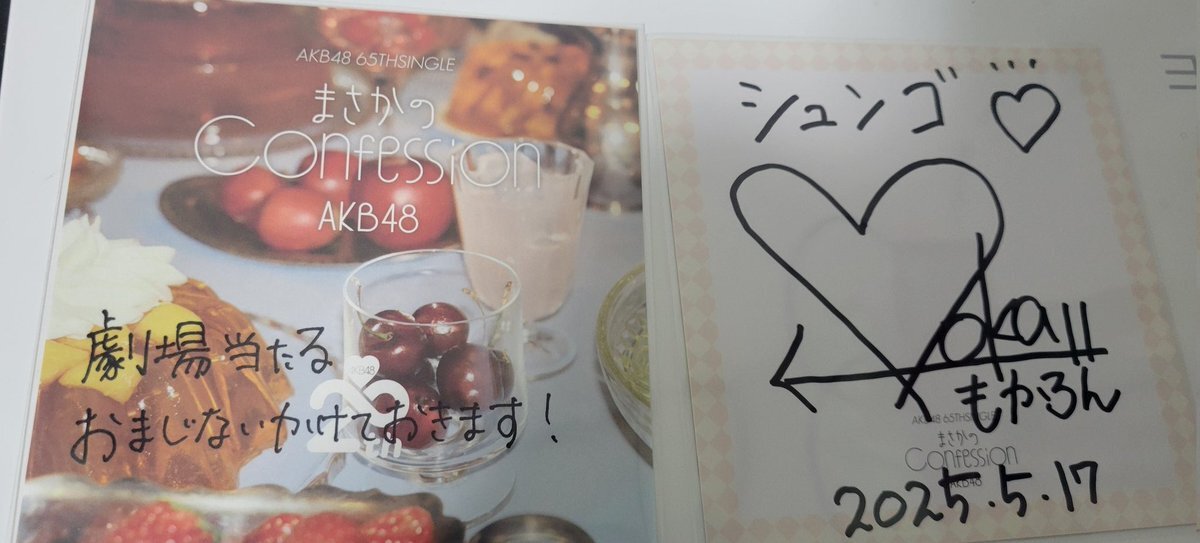 AKB48 65THSINGLE
まさかの
Confession
AKB48
劇場当たる
AKB48
20th
おまじないかけておきます!
シュンゴ
もかろん
AKB48 65THSINGLE
まさかの
Confession
AKB48
2025.5.17